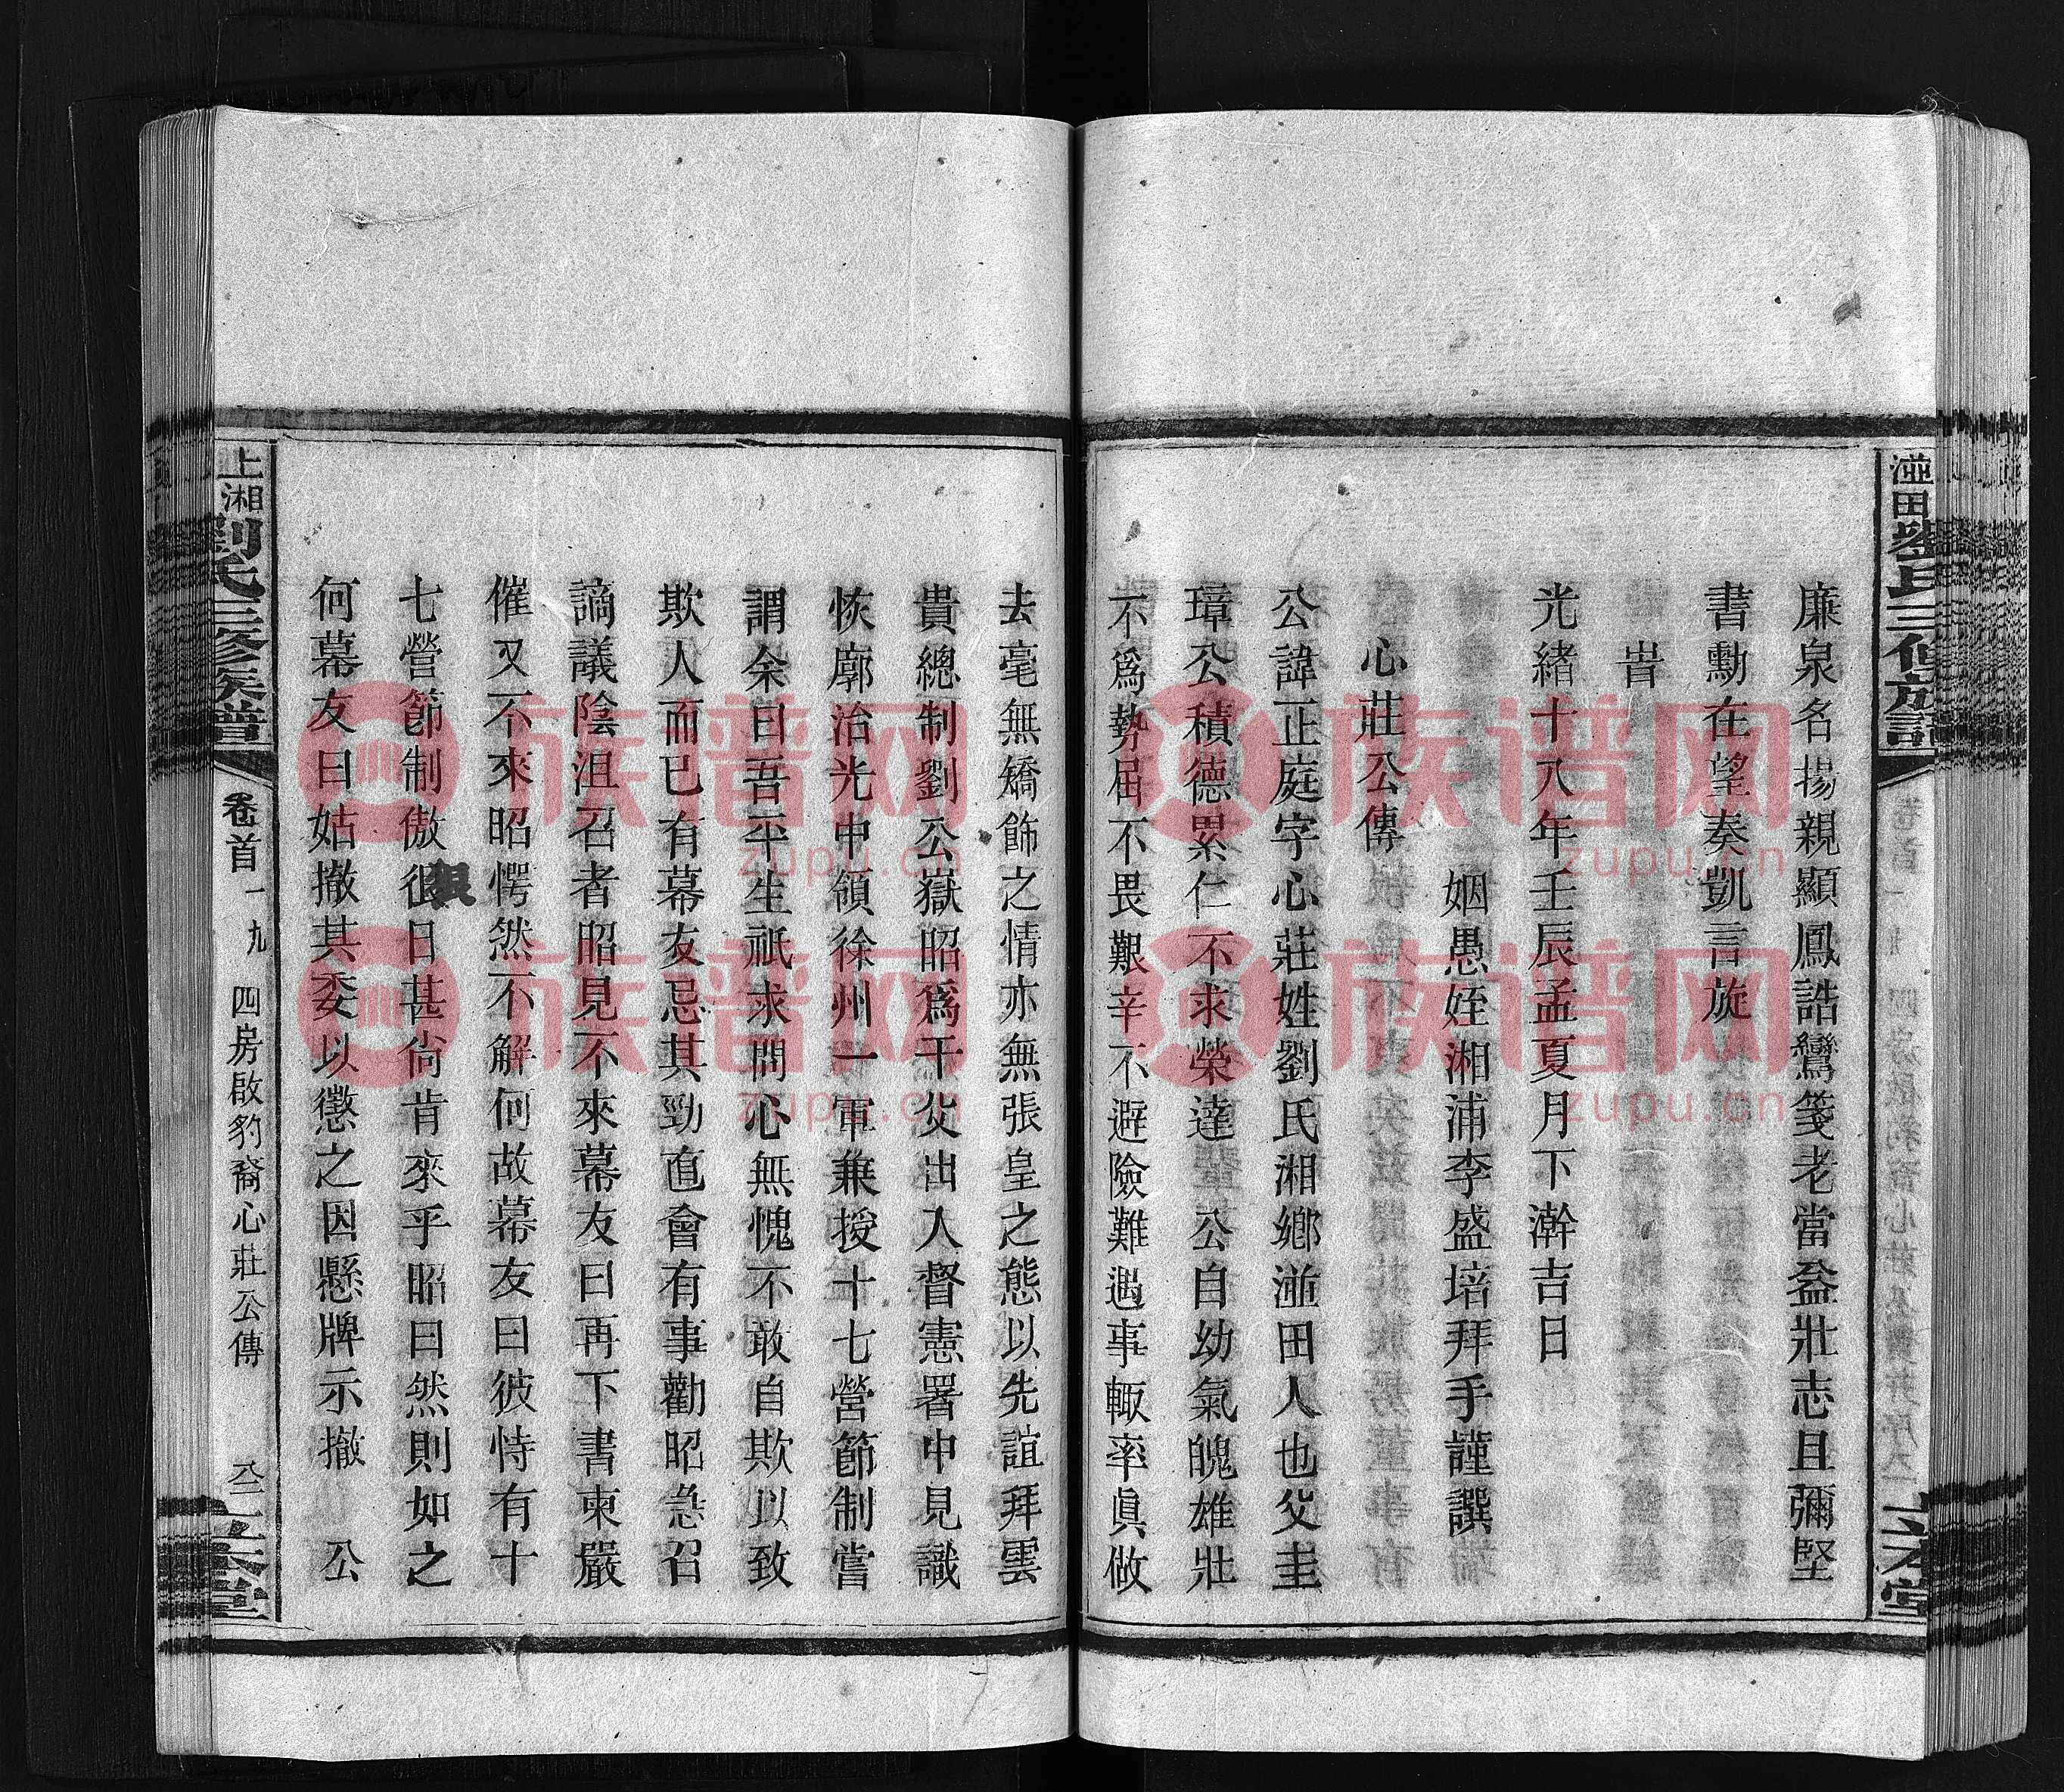 廉泉名揚親顯鳳誥鸞箋老當益壯志且彌堅
書勳在望奏凱言旋
峕
光緒十八年壬辰孟夏月下澣吉日
姻愚姪湘浦李盛培拜手謹譔
心莊公傳
公諱正庭字心莊姓劉氏湘鄉湴田人也父圭
璋公積德累仁不求榮達 公自幼氣魄雄壯
不爲勢屈不畏艱辛不避險難遇事輙率眞做
去毫無矯飾之情亦無張皇之態以先誼拜雲
貴總制劉公嶽昭爲干父出入督憲署中見識
恢廓治光中領徐州一軍兼授十七營節制嘗
謂余曰吾平生祇求問心無愧不敢自欺以致
欺人而已有幕友忌其勁直會有事勸昭急召
謫議陰沮召者昭見不來幕友曰再下書柬嚴
催又不來昭愕然不解何故幕友曰彼恃有十
七營節制傲很日甚尙肯來乎昭曰然則如之
何幕友曰姑撤其委以懲之因懸牌示撤 公
上湘
劉氏三修族譜
卷首一九
四房啟豹裔心莊公傳
湴田
族网 zupu.cn
族谱网
zupu.cn
族谱网
zupu.cn
族谱网
zupu.cn